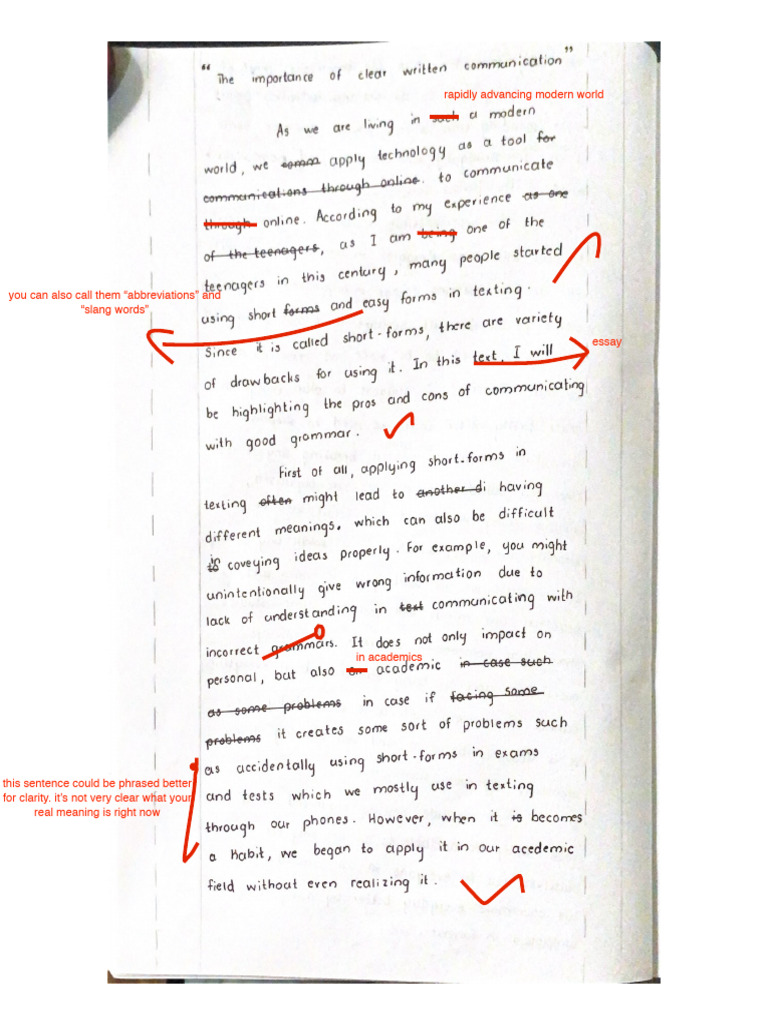 “The importance of clear written communication”
rapidly advancing modern world
As we are living in such a modern
world, we comm apply technology as a tool for
communications through online. to communicate
through online. According to my experience as one
of the teenagers, as I am being one of the
teenagers in this century, many people started
you can also call them “abbreviations” and
“slang words”
using short forms and easy forms in texting.
Since it is called short-forms, there are variety
essay
of drawbacks for using it. In this text, I will
be highlighting the pros and cons of communicating
with good grammar.
First of all, applying short-forms in
texting often might lead to another di having
different meanings. which can also be difficult
in coveying ideas properly. For example, you might
unintentionally give wrong information due to
lack of understanding in text communicating with
incorrect grammars. It does not only impact on
in academics
personal, but also on academic in case such
as some problems in case if facing some
problems it creates some sort of problems such
as accidentally using short-forms in exams
this sentence could be phrased better
for clarity. it's not very clear what your
real meaning is right now
and tests which we mostly use in texting
through our phones. However, when it is becomes
a habit, we began to apply it in our acedemic
field without even realizing it.